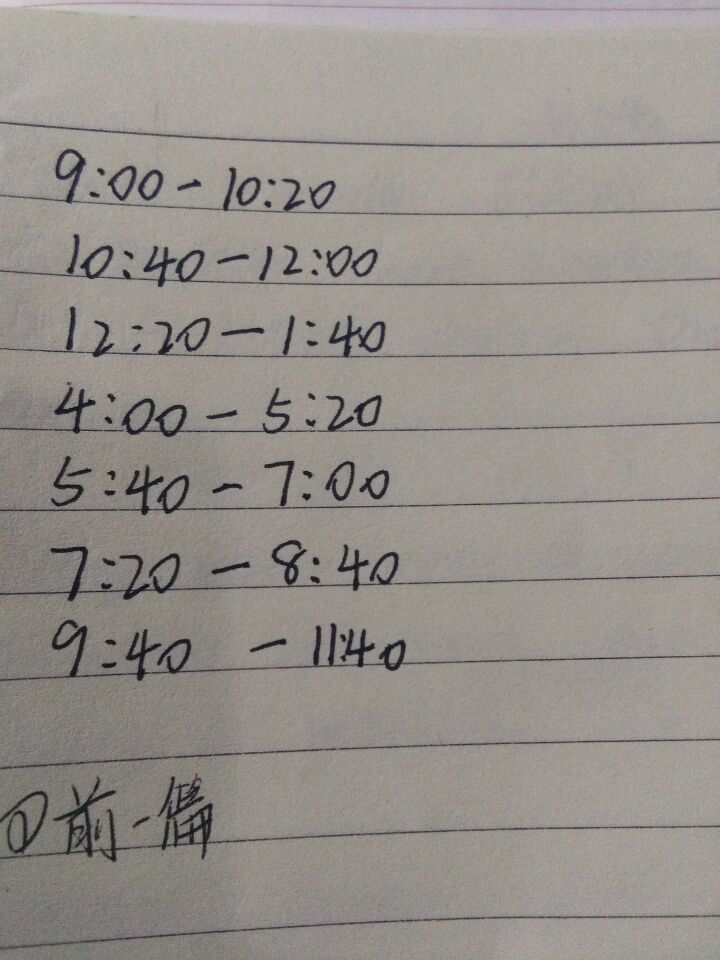 9:00 - 10:20
10:40 - 12:00
12:20 - 1:40
4:00 - 5:20
5:40 - 7:00
7:20 - 8:40
9:40 - 11:40
①前一